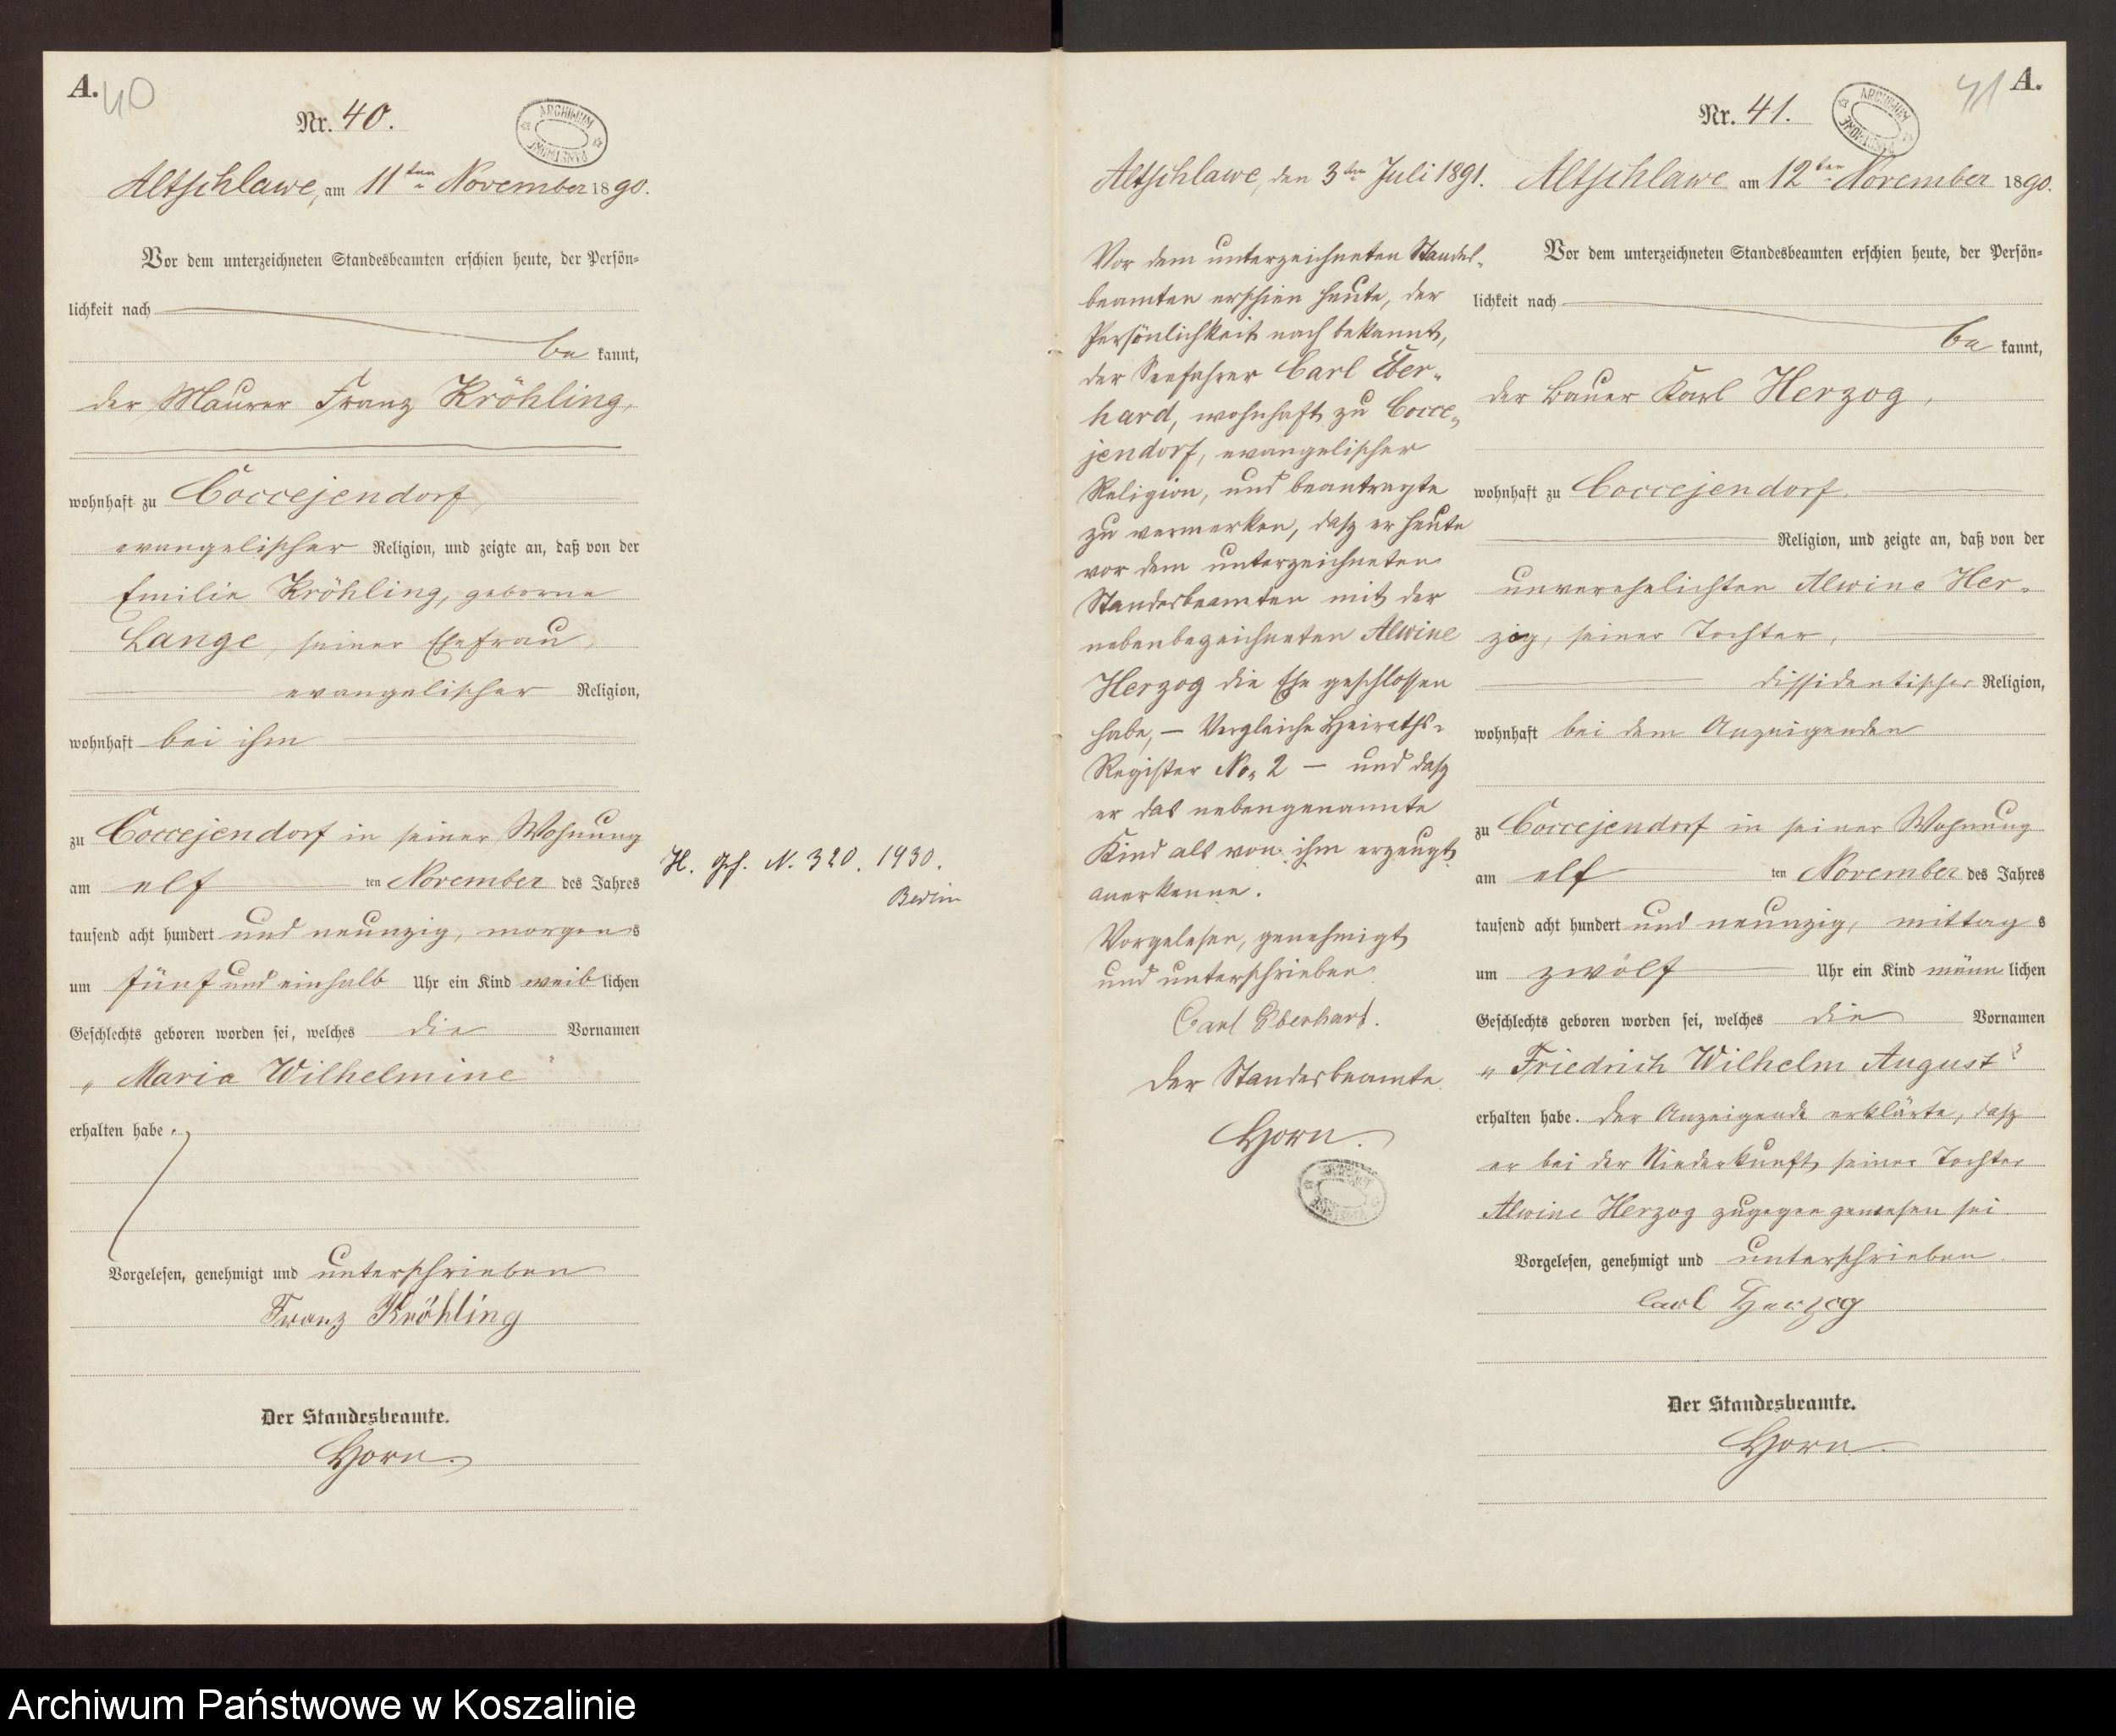 A.
40
Nr. 40.
ARCHIWUM
PAŃSTWOWE
Altschlawe, am 11ten November 1890.
Vor dem unterzeichneten Standesbeamten erschien heute, der Persön=
lichkeit nach
be kannt,
der Maurer Franz Kröhling,
wohnhaft zu Coccejendorf,
evangelischer Religion, und zeigte an, daß von der
Emilie Kröhling, geborne
Lange, seiner Ehefrau,
evangelischer Religion,
wohnhaft bei ihm
zu Coccejendorf in seiner Wohnung
am elf ten November des Jahres
tausend acht hundert und neunzig, morgens
um fünf und einhalb Uhr ein Kind weiblichen
Geschlechts geboren worden sei, welches die Vornamen
„Maria Wilhelmine"
erhalten habe.
Vorgelesen, genehmigt und unterschrieben
Franz Kröhling
Der Standesbeamte.
Horn.
H. N. 320. 1930.
Berlin
Altschlawe, den 3ten Juli 1891.
Vor dem unterzeichneten Standes-
beamten erschien heute, der
Persönlichkeit nach bekannt,
der Seefahrer Carl Eber-
hard, wohnhaft zu Cocce-
jendorf, evangelischer
Religion, und beantragte
zu vermerken, dasz er heute
vor dem unterzeichneten
Standesbeamten mit der
nebenbezeichneten Alwine
Herzog die Ehe geschlossen
habe, — Vergleiche Heiraths-
Register No. 2 — und dasz
er das nebengenannte
Kind als von ihm erzeugt
anerkenne.
Vorgelesen, genehmigt
und unterschrieben.
Carl Eberhart.
Der Standesbeamte.
Horn.
41
A.
Nr. 41.
ARCHIWUM
PAŃSTWOWE
Altschlawe am 12ten November 1890.
Vor dem unterzeichneten Standesbeamten erschien heute, der Persön=
lichkeit nach
be kannt,
der Bauer Karl Herzog,
wohnhaft zu Coccejendorf
Religion, und zeigte an, daß von der
unverehelichten Alwine Her-
zog, seiner Tochter,
dissidentischer Religion,
wohnhaft bei dem Anzeigenden
zu Coccejendorf in seiner Wohnung
am elf ten November des Jahres
tausend acht hundert und neunzig, mittags
um zwölf Uhr ein Kind männlichen
Geschlechts geboren worden sei, welches die Vornamen
„Friedrich Wilhelm August"
erhalten habe. Der Anzeigende erklärte, dasz
er bei der Niederkunft seiner Tochter
Alwine Herzog zugegen gewesen sei.
Vorgelesen, genehmigt und unterschrieben.
Carl Herzog
Der Standesbeamte.
Horn.
Archiwum Państwowe w Koszalinie